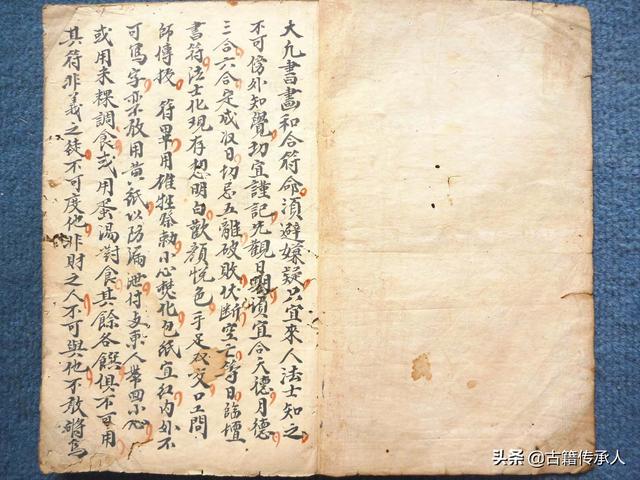 大凡書畫和合符命須避嫌疑只宜來人法士知之
不可傍外知覺切宜謹記先觀日須宜合天德月德
三合六合定成收日切忌五離破敗伏斷空亡等日臨壇
書符法士化現存想明白歡顏悅色手足双交口工問
師傳授符畢用雄牲祭勅小心焚化包紙宜紅內外不
可寫字亦敢用黃紙以防漏泄付東人帶回小心
或用米粿調食或用蛋湯對食其餘各饌俱不可用
其符非義之徒不可度他非財之人不可與他不敢
头条 @古籍传承人